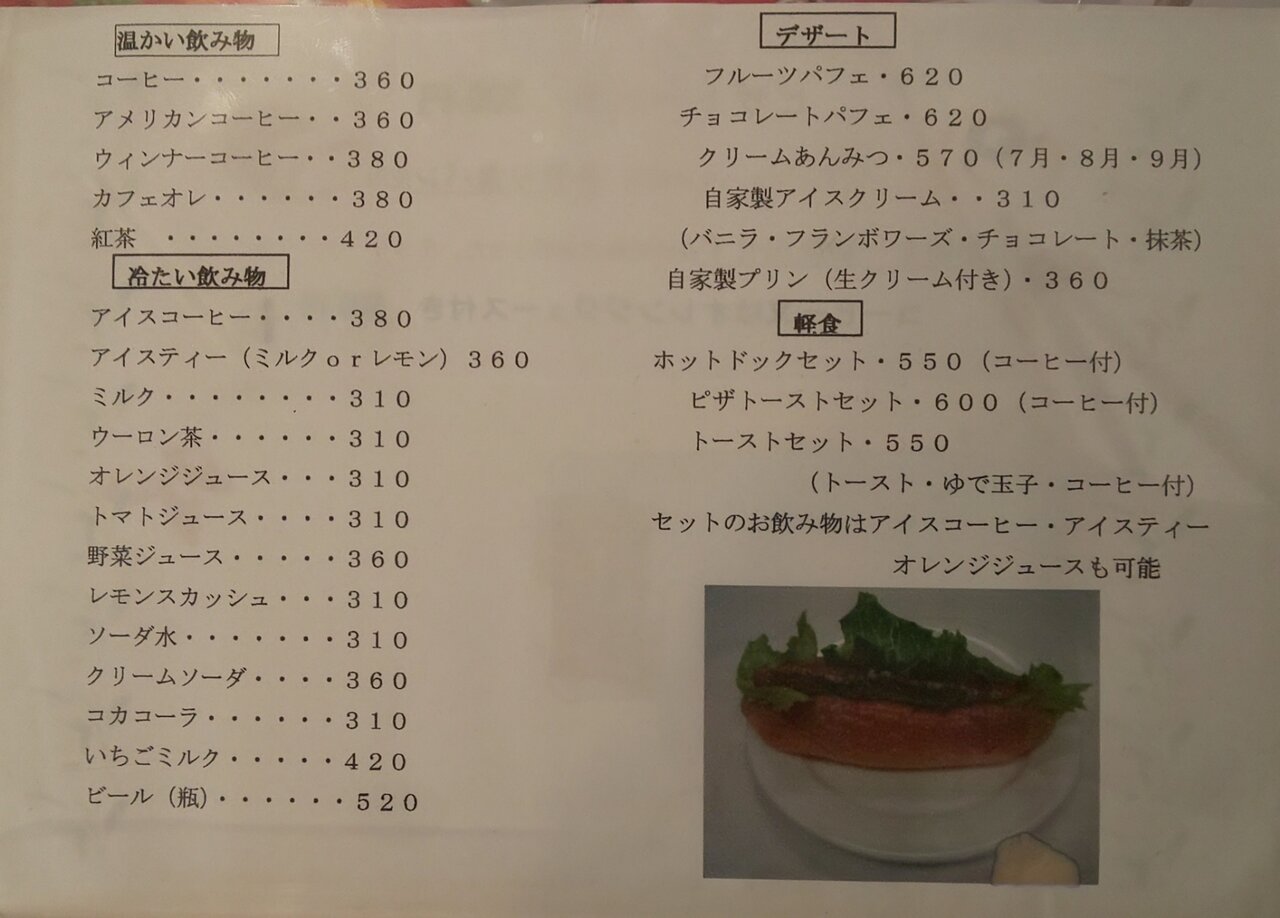 温かい飲み物
コーヒー・・・・・・・３６０
アメリカンコーヒー・・３６０
ウィンナーコーヒー・・３８０
カフェオレ・・・・・・３８０
紅茶　・・・・・・・・４２０
冷たい飲み物
アイスコーヒー・・・・３８０
アイスティー（ミルクｏｒレモン）３６０
ミルク・・・・・・・・３１０
ウーロン茶・・・・・・３１０
オレンジジュース・・・３１０
トマトジュース・・・・３１０
野菜ジュース・・・・・３６０
レモンスカッシュ・・・３１０
ソーダ水・・・・・・・３１０
クリームソーダ・・・・３６０
コカコーラ・・・・・・３１０
いちごミルク・・・・・４２０
ビール（瓶）・・・・・・５２０
デザート
フルーツパフェ・６２０
チョコレートパフェ・６２０
クリームあんみつ・５７０（７月・８月・９月）
自家製アイスクリーム・・３１０
（バニラ・フランボワーズ・チョコレート・抹茶）
自家製プリン（生クリーム付き）・３６０
軽食
ホットドックセット・５５０（コーヒー付）
ピザトーストセット・６００（コーヒー付）
トーストセット・５５０
（トースト・ゆで玉子・コーヒー付）
セットのお飲み物はアイスコーヒー・アイスティー
オレンジジュースも可能